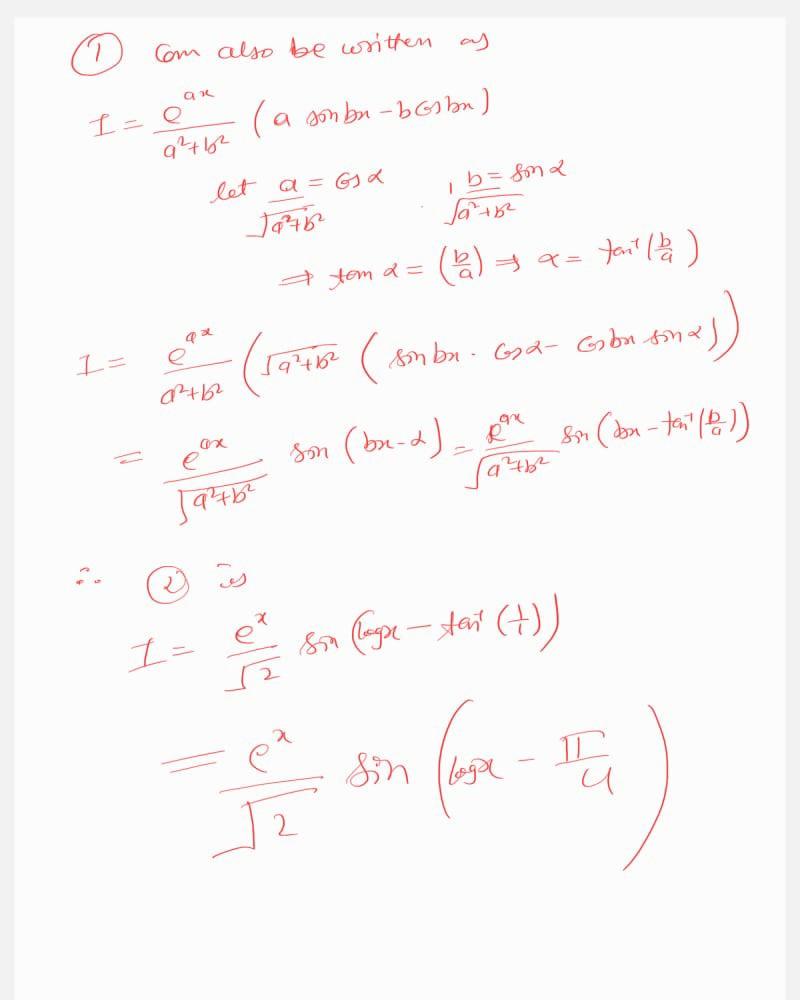 ① Can also be written as
I = e^{ax}/(a²+b²) (a sin bx - b cos bx)
let a/√(a²+b²) = cos α , b/√(a²+b²) = sin α
⇒ tan α = (b/a) ⇒ α = tan⁻¹(b/a)
I = e^{ax}/(a²+b²) (√(a²+b²) (sin bx · cos α - cos bx sin α))
= e^{ax}/√(a²+b²) sin (bx - α) = e^{ax}/√(a²+b²) sin (bx - tan⁻¹(b/a))
∴ ② is
I = e^x/√2 sin (log x - tan⁻¹(1/1))
= e^x/√2 sin (log x - π/4)